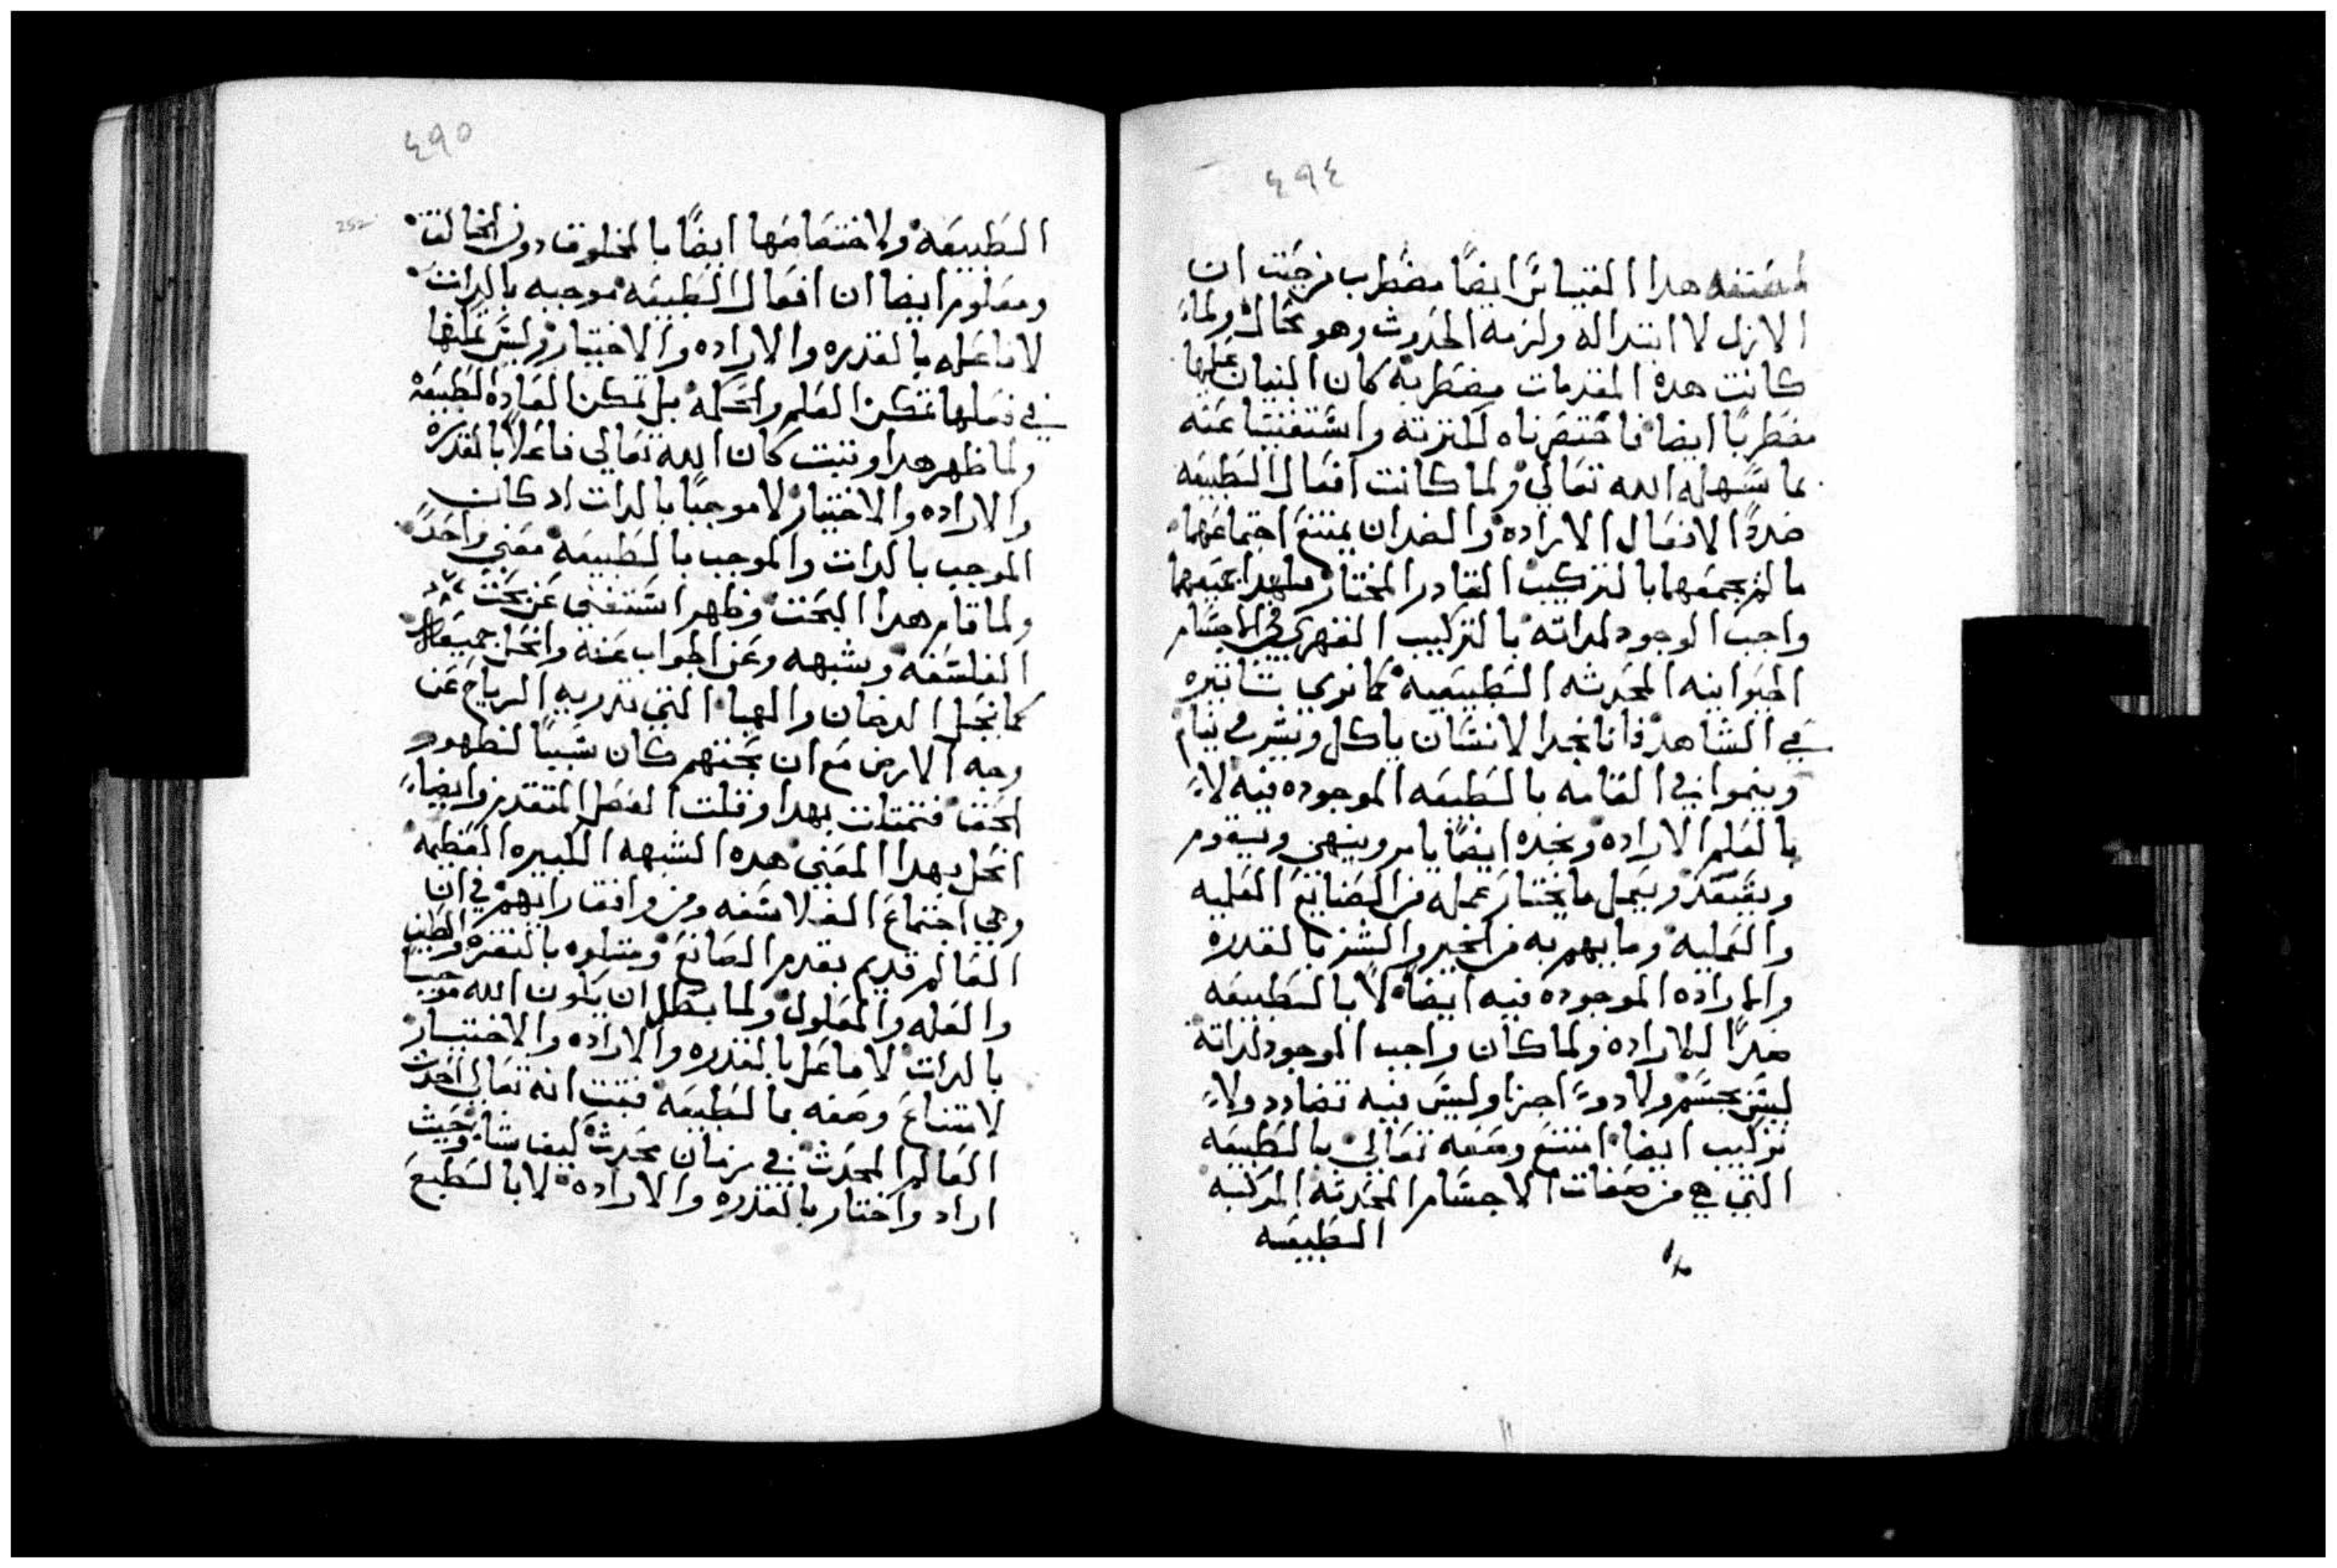 ٤٩٤
هدا القياس ايضًا مضطرب من حيت ان
الازل لا ابتدا له ولزمه الحدوث وهو محال ولما
كانت هده المقدمات مضطربه كان البنيان عليها
مضطربًا ايضا فاختصرناه لكثرته واستغنينا عنه
بما سهله الله تعالي ولما كانت افعال الطبيعه
ضدًا لافعال الاراده والضدان يمتنع اجتماعهما
ما لم يجمعهما بالتركيب القادر المختار جمعهما
واجب الوجود لداته بالتركيب القهري في الاجسام
الحيوانيه المحدثه الطبيعيه كما نري تتاتيره
في الشاهد فانا نجد الانسان ياكل ويشرب وينام
وينموا في القامه بالطبيعه الموجوده فيه لا
بالعلم الاراده ونجده ايضًا يامر وينهي ويقوم
ويقعد ويعمل ما يختار عمله من الصنايع العلميه
والعمليه وما يهم به من الخير والشر بالقدره
والاراده الموجوده فيه ايضًا لا بالطبيعه
ضدًا للاراده ولما كان واجب الوجود لداته
ليس بجسم ولا دو اجزا وليس فيه تضادد ولا
تركيب ايضا امتنع وصفه تعالي بالطبيعه
التي هي من صفات الاجسام المحدثه المركبه
الطبيعه
٤٩٥
252
الطبيعه ولاختصاصها ايضًا بالمخلوق دون الخالق
ومعلوم ايضا ان افعال الطبيعه موجبه بالدات
لا فاعله بالقدره والاراده والاختيار وليس تمكنها
في فعلها تمكن العلم والحكمه بل تمكن العاده الطبيعه
ولما ظهر هدا وتبت كان الله تعالي فاعلًا بالقدره
والاراده والاختيار لا موجبًا بالدات اد كان
الموجب بالدات والموجب بالطبيعه معني واحد
ولما قام هدا البحت وظهر استغني عن بحت
الفلاسفه وشبهه وعن الجواب عنه وانحل جميعه
كما ينحل الدخان والهبا التي تدريه الرياح عن
وجه الارض مع ان بحتهم كان سببًا لظهور
الحق فتمتلت بهدا وقلت الفصل المتقدم وايضا
انحل بهدا المعني هده الشبهه الكبيره العظيمه
وهي اجتماع الفلاسفه ومن وافق رايهم في ان
العالم قديم بقدم الصانع ومتلوه بالنقره والطين
والعله والمعلول ولما بطل ان يكون الله موجبا
بالدات لا فاعل بالقدره والاراده والاختيار
لامتناع وصفه بالطبيعه فتبت انه تعالي احدث
العالم المحدث في زمان محدث كيف شا وحيث
اراد واختار بالقدره والاراده لا بالطبع